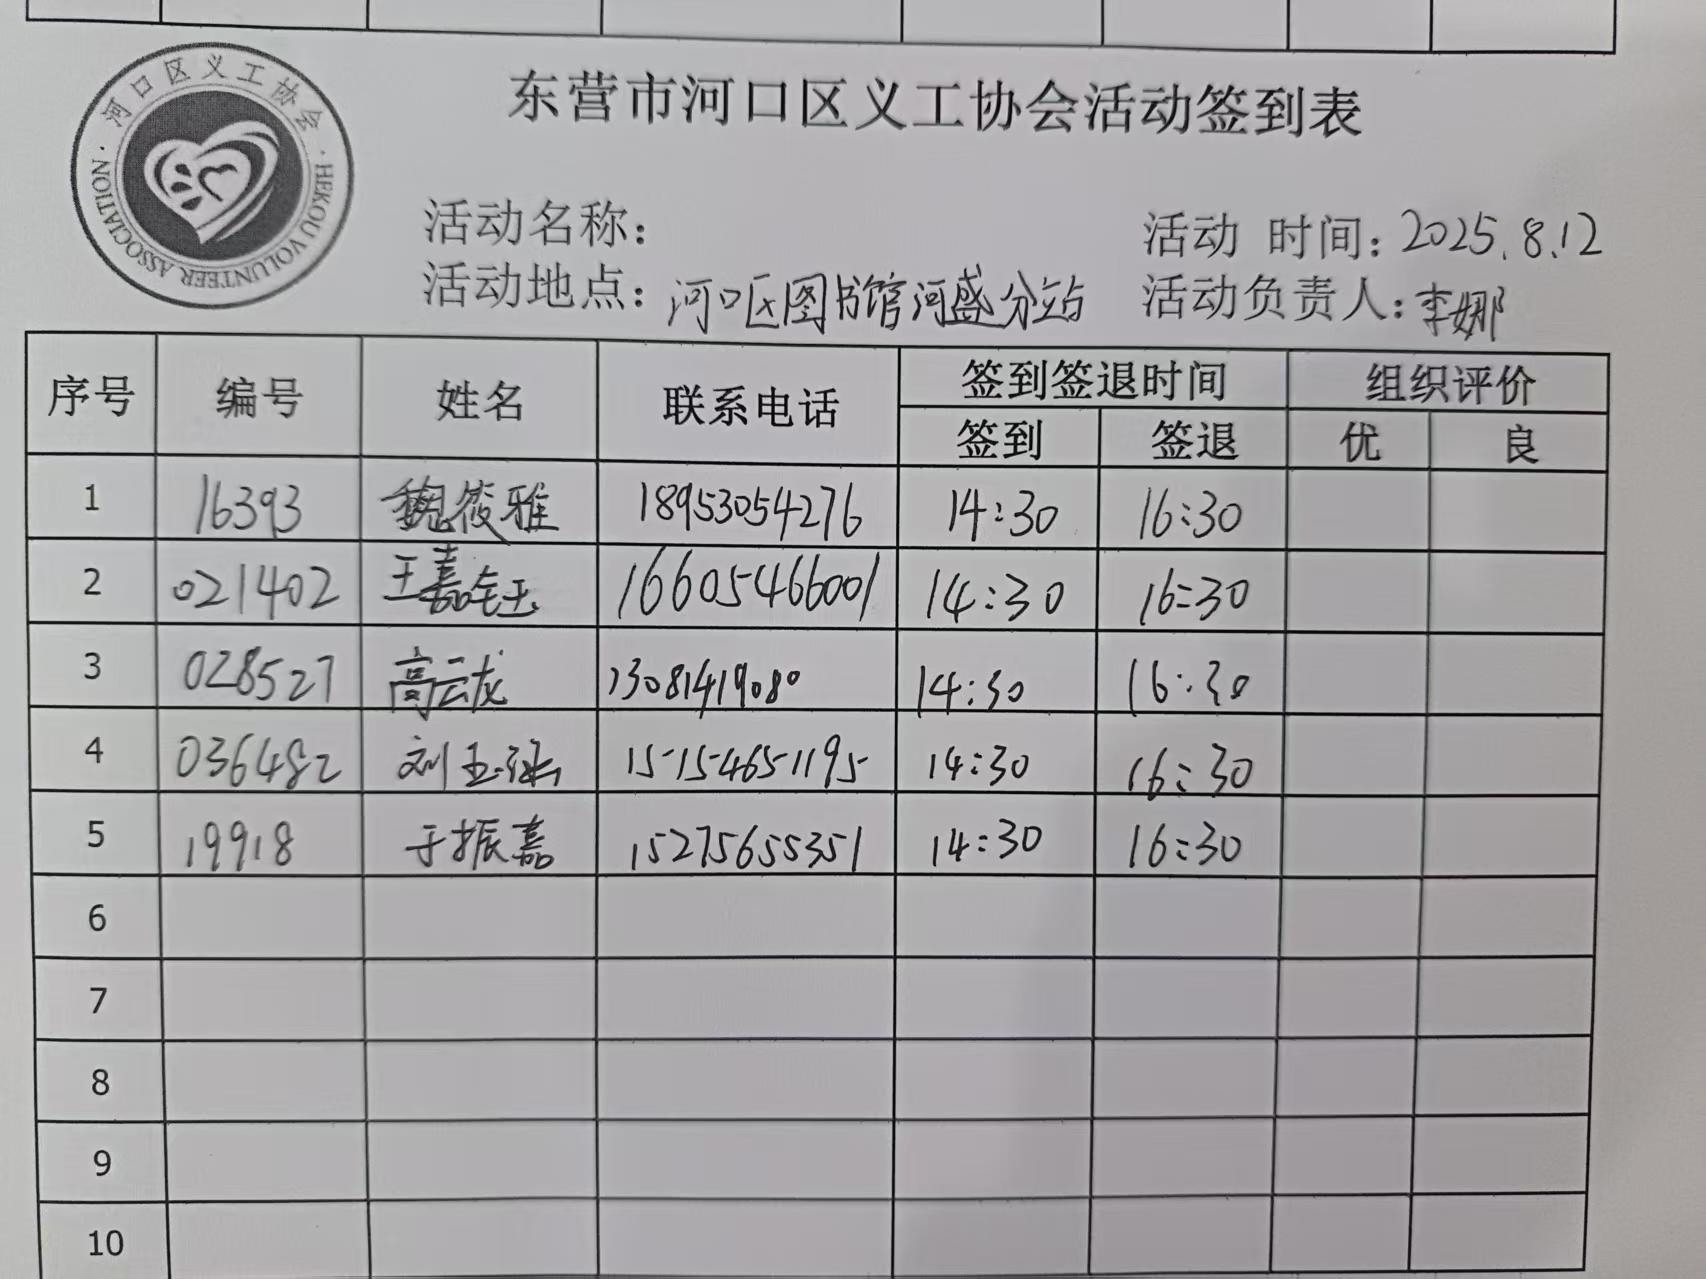 河口区义工协会
HEKOU VOLUNTEER ASSOCIATION
东营市河口区义工协会活动签到表
活动名称: 活动 时间: 2025.8.12
活动地点: 河口区图书馆河盛分站 活动负责人: 李娜
序号 编号 姓名 联系电话 签到签退时间 组织评价
签到 签退 优 良
1 16393 魏筱雅 18953054276 14:30 16:30
2 021402 王嘉钰 16605466001 14:30 16:30
3 028527 高云龙 13081419080 14:30 16:30
4 036482 刘玉涵 15154651195 14:30 16:30
5 19918 于振嘉 15275655351 14:30 16:30
6
7
8
9
10